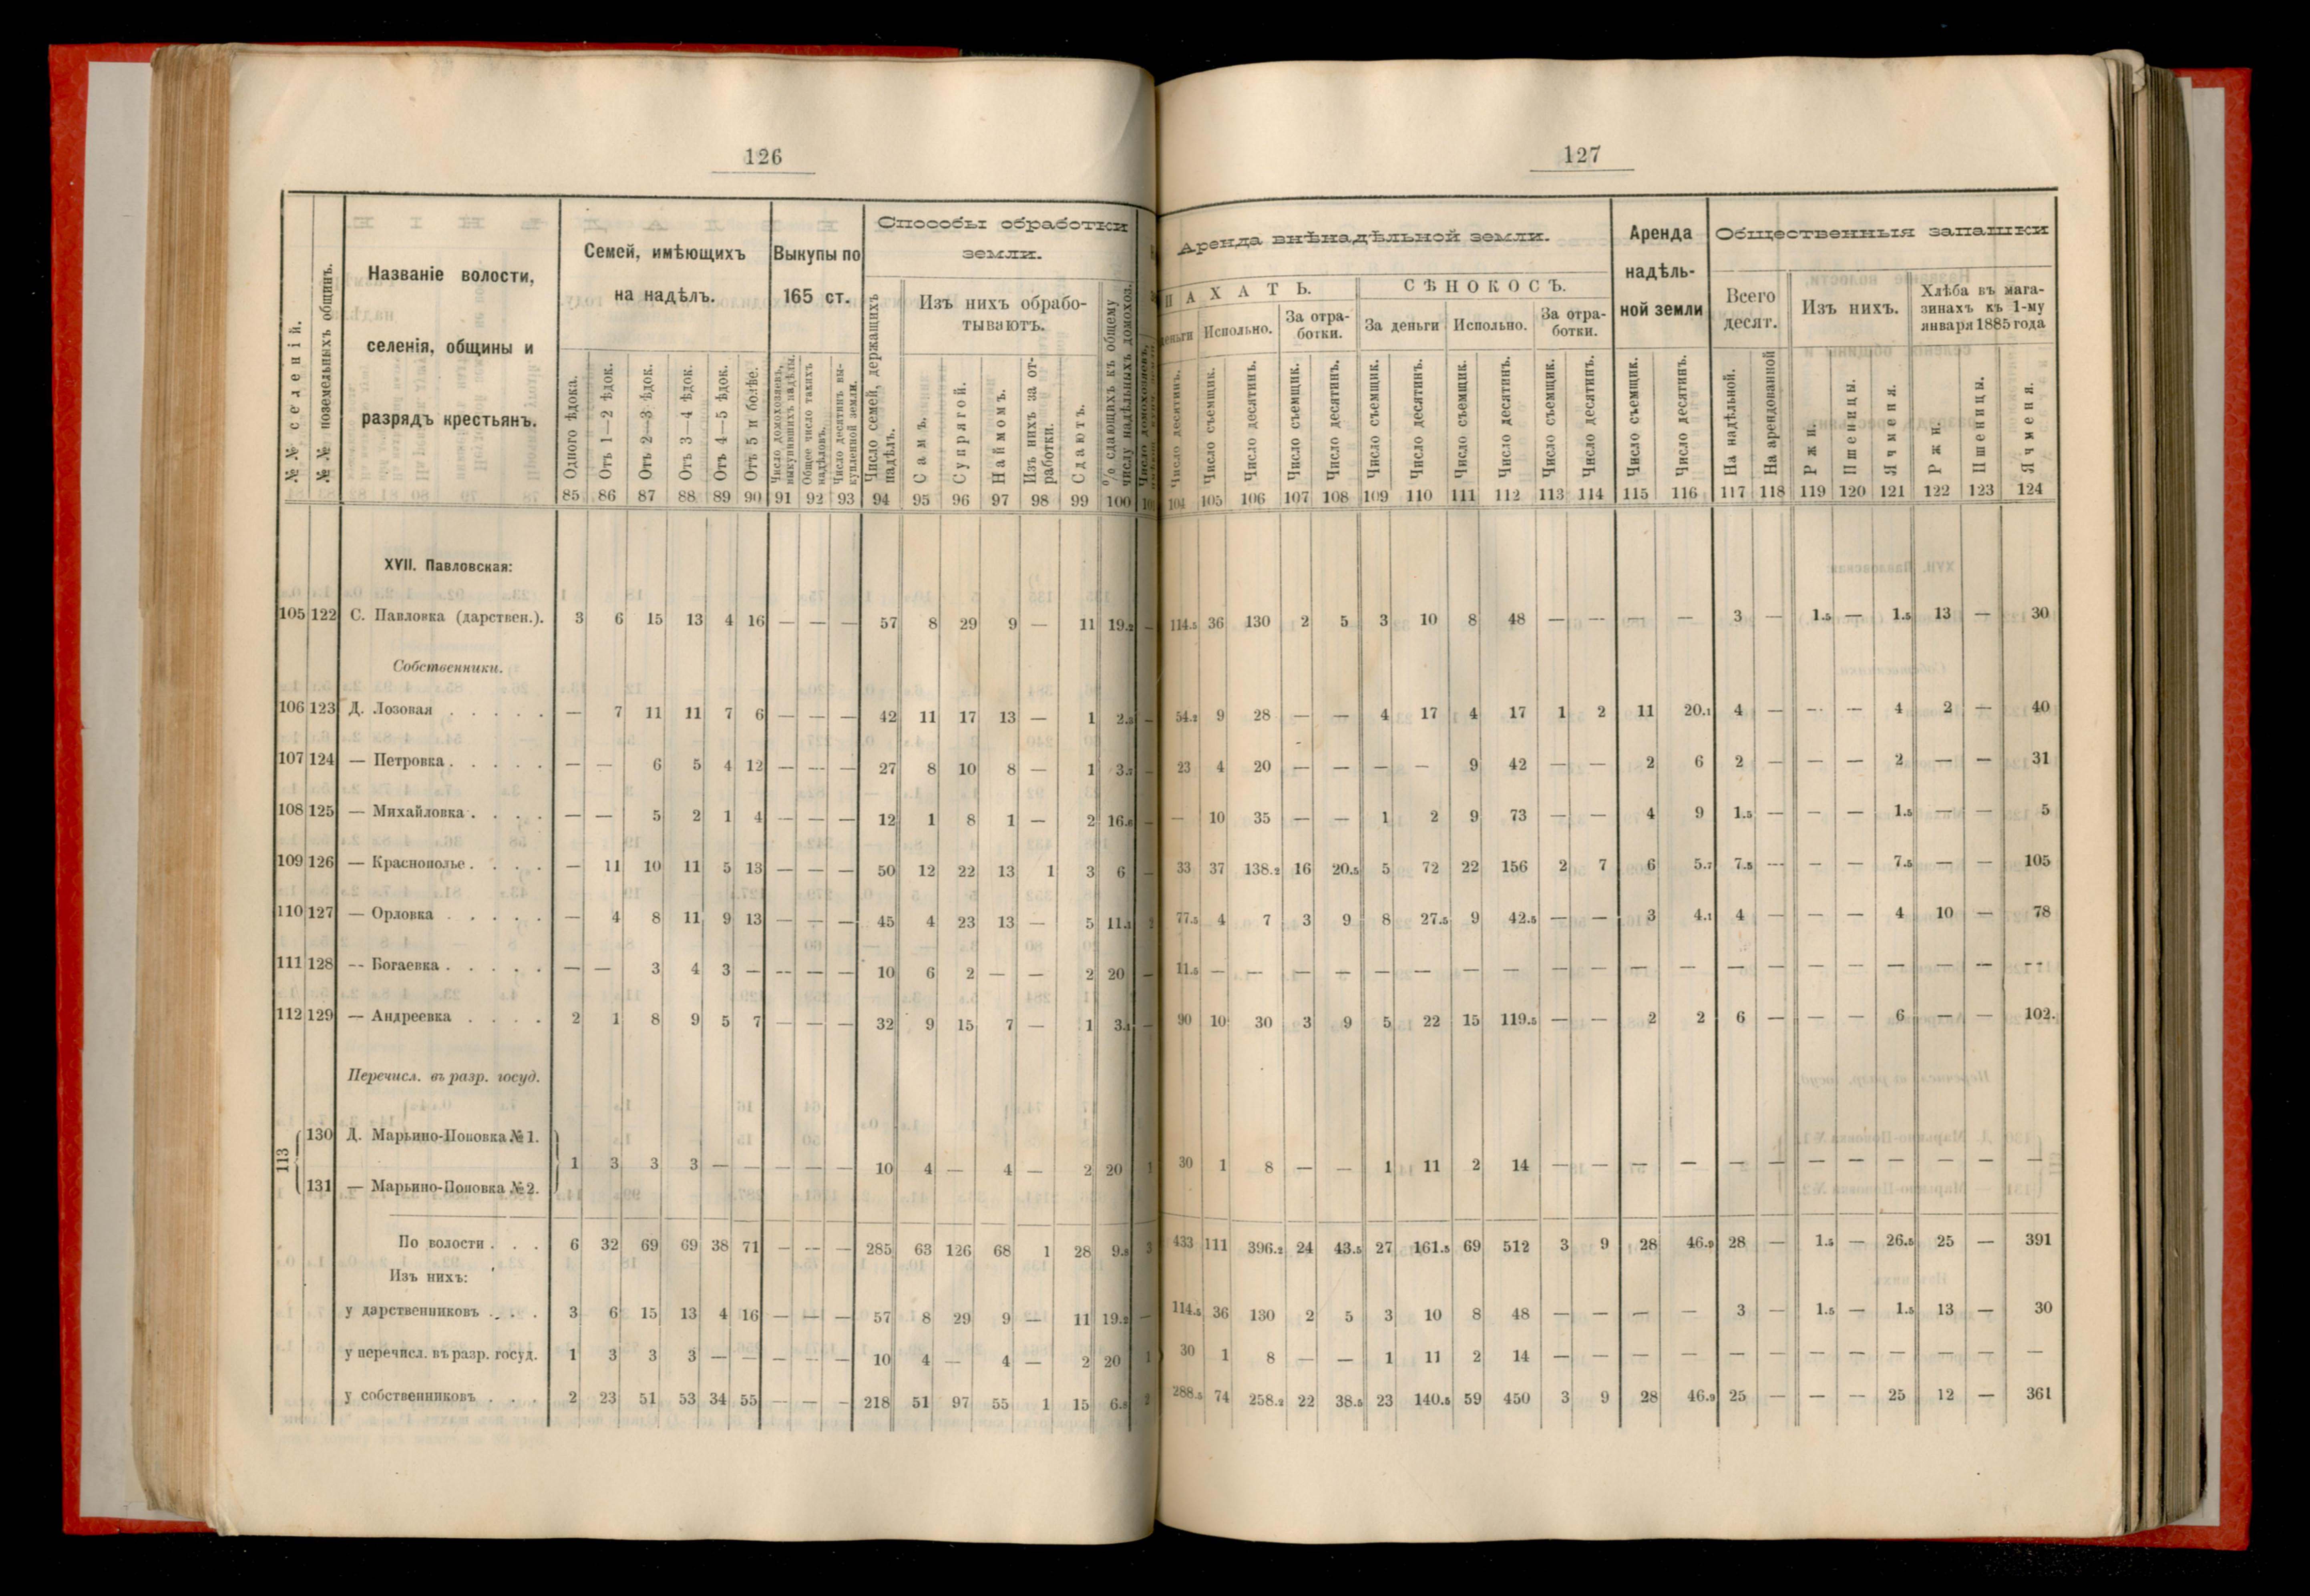 126
№№ селеній.
№№ поземельныхъ общинъ.
Названіе волости,
селенія, общины и
разрядъ крестьянъ.
Семей, имѣющихъ
на надѣлъ.
Одного ѣдока.
Отъ 1—2 ѣдок.
Отъ 2—3 ѣдок.
Отъ 3—4 ѣдок.
Отъ 4—5 ѣдок.
Отъ 5 и болѣе.
Выкупы по
165 ст.
Число домохозяевъ,
выкупившихъ надѣлы.
Общее число такихъ
надѣловъ.
Число десятинъ вы-
купленной земли.
Способы обработки
земли.
Число семей, держащихъ
надѣлъ.
Изъ нихъ обрабо-
тываютъ.
Самъ.
Супрягой.
Наймомъ.
Изъ нихъ за от-
работки.
Сдаютъ.
% сдающихъ къ общему
числу надѣльныхъ домохоз.
85 86 87 88 89 90 91 92 93 94 95 96 97 98 99 100
XVII. Павловская:
105 122 С. Павловка (дарствен.). 3 6 15 13 4 16 — — — 57 8 29 9 — 11 19.2 —
Собственники.
106 123 Д. Лозовая . . . . . — 7 11 11 7 6 — — — 42 11 17 13 — 1 2.3 —
107 124 — Петровка . . . . . — — 6 5 4 12 — — — 27 8 10 8 — 1 3.7 —
108 125 — Михайловка . . . . — — 5 2 1 4 — — — 12 1 8 1 — 2 16.6 —
109 126 — Краснополье . . . . — 11 10 11 5 13 — — — 50 12 22 13 1 3 6 —
110 127 — Орловка . . . . . — 4 8 11 9 13 — — — 45 4 23 13 — 5 11.1 2
111 128 — Богаевка . . . . . — — 3 4 3 — — — — 10 6 2 — — 2 20 —
112 129 — Андреевка . . . . 2 1 8 9 5 7 — — — 32 9 15 7 — 1 3.1 —
Перечисл. въ разр. госуд.
113
130 Д. Марьино-Поповка № 1.
1 3 3 3 — — — — — 10 4 — 4 — 2 20 1
131 — Марьино-Поповка № 2.
По волости . . . 6 32 69 69 38 71 — — — 285 63 126 68 1 28 9.8 3
Изъ нихъ:
у дарственниковъ . . . 3 6 15 13 4 16 — — — 57 8 29 9 — 11 19.2 —
у перечисл. въ разр. госуд. 1 3 3 3 — — — — — 10 4 — 4 — 2 20 1
у собственниковъ . . . 2 23 51 53 34 55 — — — 218 51 97 55 1 15 6.8 2
127
Аренда внѣнадѣльной земли.
ПАХАТЬ.
деньги
Число десятинъ.
Испольно.
Число съемщик.
Число десятинъ.
За отра-
ботки.
Число съемщик.
Число десятинъ.
СѢНОКОСЪ.
За деньги
Число съемщик.
Число десятинъ.
Испольно.
Число съемщик.
Число десятинъ.
За отра-
ботки.
Число съемщик.
Число десятинъ.
Аренда
надѣль-
ной земли
Число съемщик.
Число десятинъ.
Общественныя запашки
Всего
десят.
На надѣльной.
На арендованной
Изъ нихъ.
Ржи.
Пшеницы.
Ячменя.
Хлѣба въ мага-
зинахъ къ 1-му
января 1885 года
Ржи.
Пшеницы.
Ячменя.
104 105 106 107 108 109 110 111 112 113 114 115 116 117 118 119 120 121 122 123 124
114.5 36 130 2 5 3 10 8 48 — — — — 3 — 1.5 — 1.5 13 — 30
54.2 9 28 — — 4 17 4 17 1 2 11 20.1 4 — — — 4 2 — 40
23 4 20 — — — — 9 42 — — 2 6 2 — — — 2 — — 31
— 10 35 — — 1 2 9 73 — — 4 9 1.5 — — — 1.5 — — 5
33 37 138.2 16 20.5 5 72 22 156 2 7 6 5.7 7.5 — — — 7.5 — — 105
77.5 4 7 3 9 8 27.5 9 42.5 — — 3 4.1 4 — — — 4 10 — 78
11.5 — — — — — — — — — — — — — — — — — — — —
90 10 30 3 9 5 22 15 119.5 — — 2 2 6 — — — 6 — — 102.
30 1 8 — — 1 11 2 14 — — — — — — — — — — — —
433 111 396.2 24 43.5 27 161.5 69 512 3 9 28 46.9 28 — 1.5 — 26.5 25 — 391
114.5 36 130 2 5 3 10 8 48 — — — — 3 — 1.5 — 1.5 13 — 30
30 1 8 — — 1 11 2 14 — — — — — — — — — — — —
288.5 74 258.2 22 38.5 23 140.5 59 450 3 9 28 46.9 25 — — — 25 12 — 361